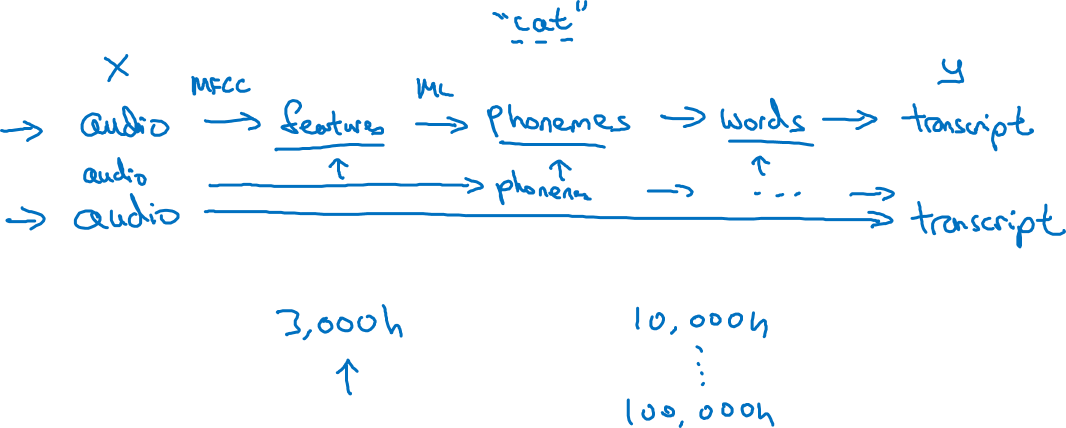 "cat"
X y
MFCC ML
→ audio → features → phonemes → words → transcript
audio → phonemes → ... →
→ audio → transcript
3,000h 10,000h
100,000h